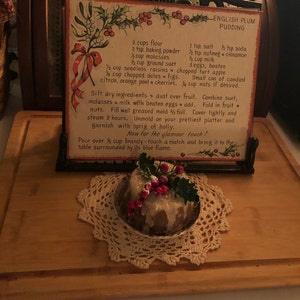 ENGLISH PLUM
PUDDING
3 cups flour
1 tsp salt ½ tsp soda
1 tsp baking powder
½ tsp nutmeg + cinnamon
½ cup molasses
½ cup milk
½ cup ground suet
3 eggs, beaten
½ cup seedless raisins + chopped tart apple
½ cup chopped dates + figs. Small can of candied
citron, orange peel + cherries. ½ cup nuts if desired
Sift dry ingredients + dust over fruit. Combine suet,
molasses + milk with beaten eggs + add. Fold in fruit +
nuts. Fill well greased mold ⅔ full. Cover tightly and
steam 3 hours. Unmold on your prettiest platter and
garnish with sprig of holly.
Now for the glamour touch!
Pour over ½ cup brandy-touch a match and bring it to the
table surrounded by its blue flame.